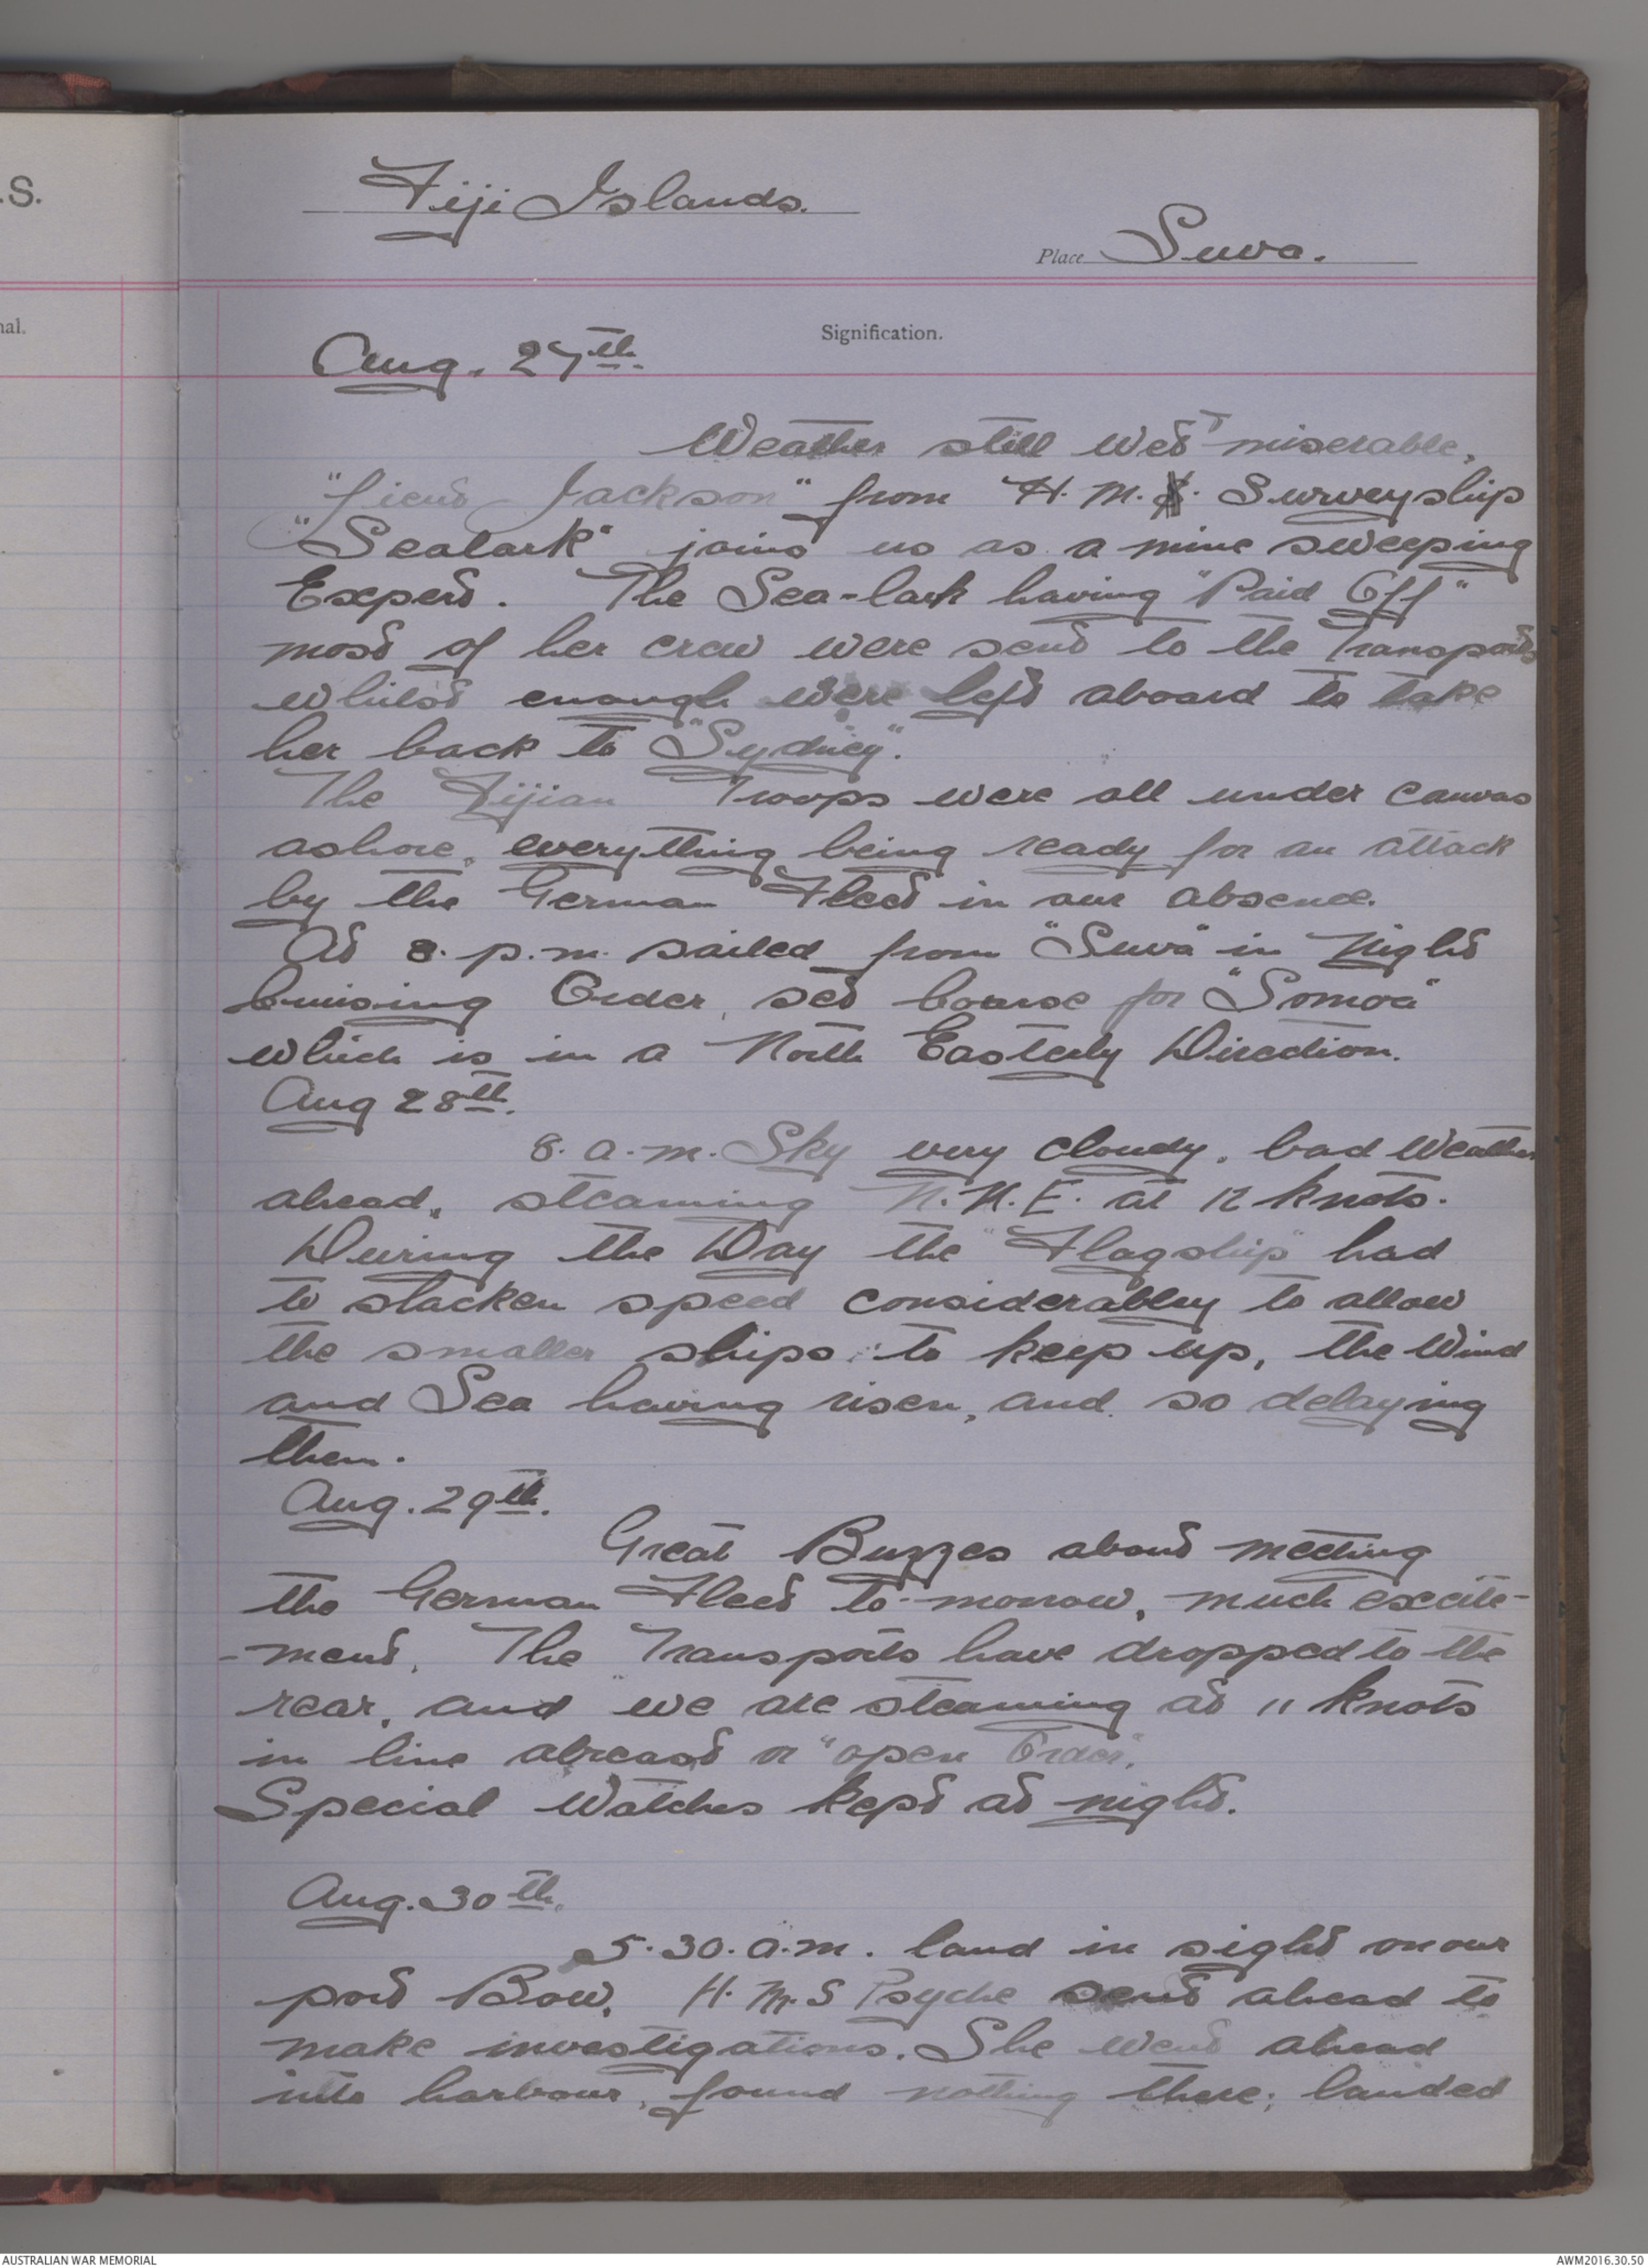 .S.
nal.
Fiji Islands.
Place Suva.
Signification.
Aug. 27th.
Weather still wet & miserable,
"Lieut Jackson" from H.M. Surveyship
"Sealark" joins us as a mine sweeping
Expert. The Sea-lark having "Paid Off"
most of her crew were sent to the Transports
whilst enough were left aboard to take
her back to "Sydney".
The Fijian Troops were all under canvas
ashore, everything being ready for an attack
by the German Fleet in our absence.
At 8. p.m. sailed from "Suva" in Night
Cruising Order, set Course for "Somoa"
which is in a North Easterly Direction.
Aug 28th.
8. a.m. Sky very cloudy, bad weather
ahead, steaming N.N.E. at 12 knots.
During the Day the "Flagship" had
to slacken speed considerabley to allow
the smaller ships to keep up, the Wind
and Sea having risen, and so delaying
them.
Aug. 29th.
Great Buzzes about meeting
the German Fleet to-morrow, much excite-
-ment. The Transports have dropped to the
rear, and we are steaming at 11 knots
in line abreast or "open Order".
Special Watches kept at night.
Aug. 30th.
5.30. a.m. land in sight on our
port Bow, H.M.S Psyche sent ahead to
make investigations. She went ahead
into harbour, found nothing there; landed
AUSTRALIAN WAR MEMORIAL
AWM2016.30.50